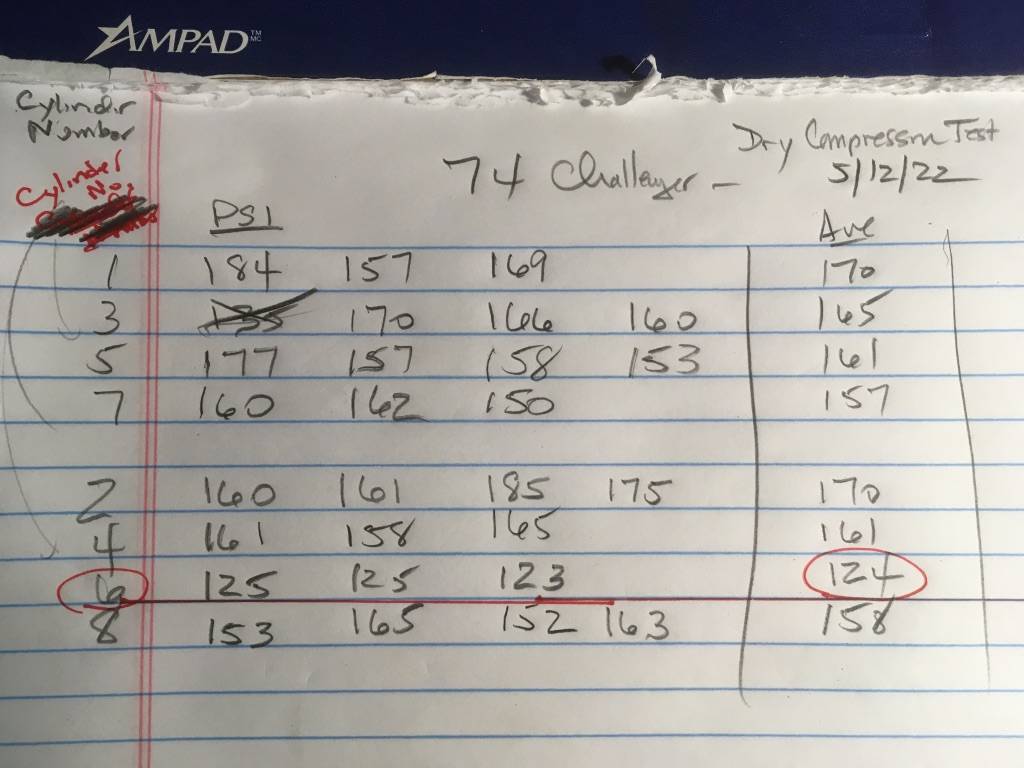 AMPAD TM MC
Cylinder
Number
Dry Compression Test
74 Challenger – 5/12/22
Cylinder
No.
PSI Ave
1 184 157 169 170
3 135 170 166 160 165
5 177 157 158 153 161
7 160 162 150 157
2 160 161 185 175 170
4 161 158 165 161
6 125 125 123 124
8 153 165 152 163 158